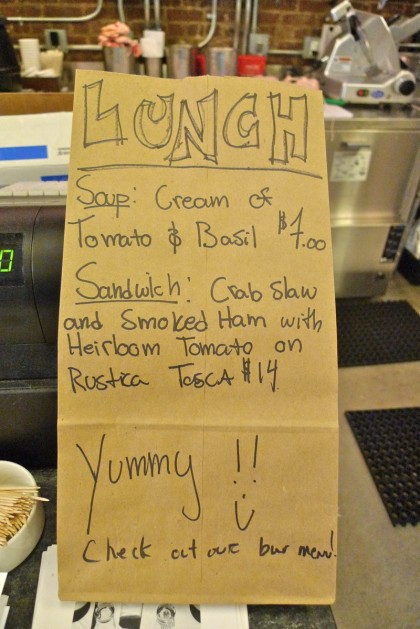 LUNCH
Soup: Cream of
Tomato & Basil $7.00
Sandwich: Crab Slaw
and Smoked Ham with
Heirloom Tomato on
Rustica Tosca $14
Yummy !!
Check out our bar menu!
0